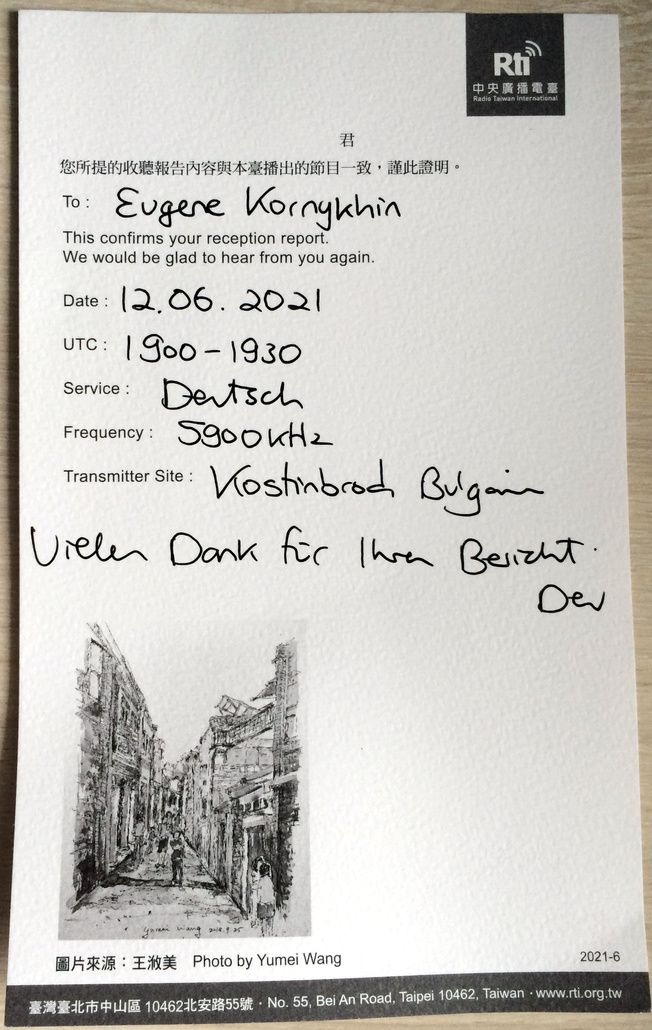 Rti
中央廣播電臺
Radio Taiwan International
君
您所提的收聽報告內容與本臺播出的節目一致，謹此證明。
To : Eugene Kornykhin
This confirms your reception report.
We would be glad to hear from you again.
Date : 12.06.2021
UTC : 1900-1930
Service : Deutsch
Frequency : 5900 kHz
Transmitter Site : Kostinbrod Bulgarien
Vielen Dank für Ihren Bericht.
Yumei Wang
圖片來源：王漵美 Photo by Yumei Wang
2021-6
臺灣臺北市中山區 10462北安路55號 · No. 55, Bei An Road, Taipei 10462, Taiwan · www.rti.org.tw